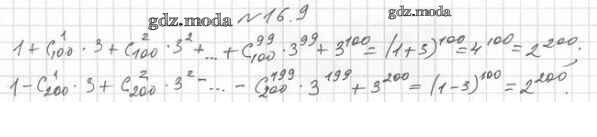 gdz.moda №16.9 gdz.moda
1 + C¹₁₀₀ · 3 + C²₁₀₀ · 3² + ... + C⁹⁹₁₀₀ · 3⁹⁹ + 3¹⁰⁰ = (1+3)¹⁰⁰ = 4¹⁰⁰ = 2²⁰⁰.
1 - C¹₂₀₀ · 3 + C²₂₀₀ · 3² - ... - C¹⁹⁹₂₀₀ · 3¹⁹⁹ + 3²⁰⁰ = (1-3)¹⁰⁰ = 2²⁰⁰.